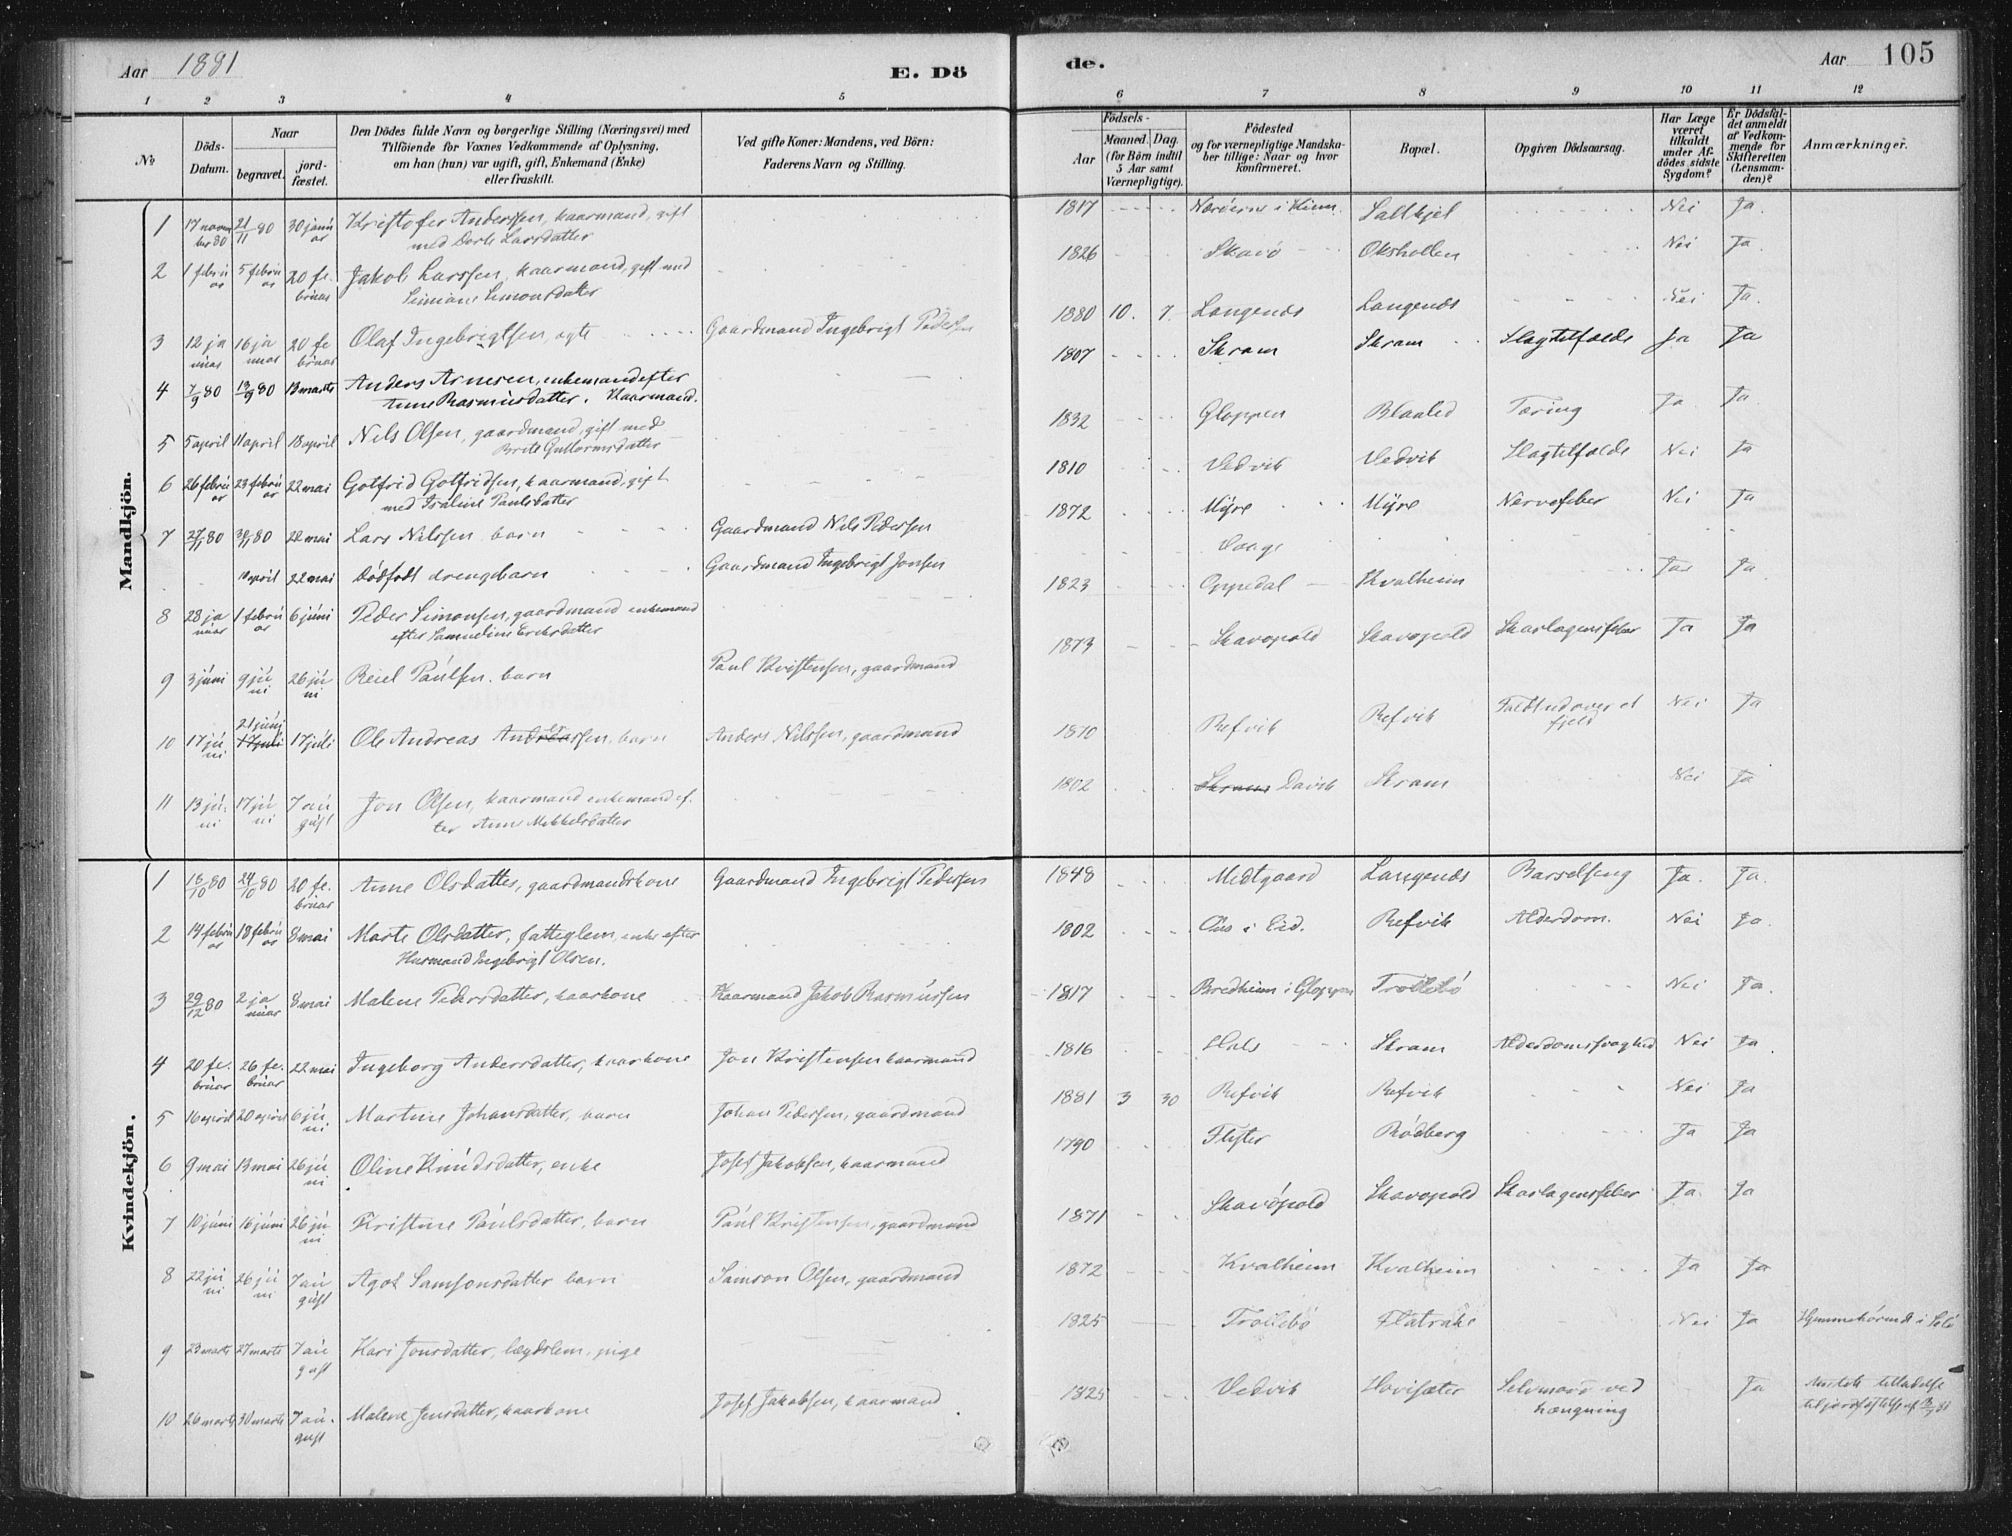 Aar 1881
E. Dö
de.
Aar 105
1 2 3 4 5 6 7 8 9 10 11 12
No
Döds-Datum.
Naar
begravet.
jord-fæstet.
Den Dödes fulde Navn og borgerlige Stilling (Næringsvei) med
Tilföiende for Voxnes Vedkommende af Oplysning,
om han (hun) var ugift, gift, Enkemand (Enke)
eller fraskilt.
Ved gifte Koner: Mandens, ved Börn:
Faderens Navn og Stilling.
Födsels-
Aar
Maaned. Dag.
(for Börn indtil
5 Aar samt
Værnepligtige).
Födested
og for værnepligtige Mandska-
ber tillige: Naar og hvor
konfirmeret.
Bopæl.
Opgiven Dödsaarsag.
Har Læge
været
tilkaldt
under Af-
dödes sidste
Sygdom?
Er Dödsfal-
det anmeldt
af Vedkom-
mende for
Skifteretten
(Lensman-
den)?
Anmærkninger.
Mandkjön.
1 17 november 80 21/11 80 30 januar Kristofer Anderssen, kaarmand, gift
med Dorte Larsdatter
1817 Saltkjel Nei Ja.
2 1 februar 5 februar 20 februar Jakob Larssen, kaarmand, gift med
Simiane Simonsdatter
1826 Skavø Oksholten Nei Ja.
3 12 januar 16 januar 20 februar Olaf Ingebrigtsen, ægte Gaardmand Ingebrigt Pedersen
1880 10. 7 Langenæs Langenæs Nei Ja.
4 7/9 80 13/9 80 13 marts Anders Arnesen, enkemand efter
Anne Rasmusdatter. Kaarmand.
1807 Skram Skram Slagtilfælde Ja Ja
5 5 april 11 april 18 april Nils Olsen, gaardmand, gift med
Brite Guttormsdatter
1832 Gloppen Blaalid Tæring Ja Ja.
6 26 februar 23 februar 22 mai Gotfrid Gotfridsen, kaarmand, gift
med Iraline Paulsdatter
1810 Vedvik Vedvik Slagtilfælde Nei Ja
7 27/11 80 30/11 80 22 mai Lars Nilssen barn Gaardmand Nils Pedersen
1872 Myre Myre Nervefeber Nei Ja
10 april 22 mai Dødfødt drengebarn Gaardmand Ingebrigt Jonsen
Vaage
8 28 januar 1 februar 6 juni Peder Simonsen, gaardmand enkemand
efter Samueline Eriksdatter
1823 Oppedal Kvalheim Ja Ja
9 3 juni 9 juni 26 juni Reiel Paulsen. barn Paul Kristensen, gaardmand
1873 Skavøpold Skavøpold Skarlagensfeber Ja Ja
10 17 juni 21 juni 17 juli 17 juli Ole Andreas Andreassen. barn Anders Nilssen, gaardmand
1870 Refvik Refvik Faldt ud over et
fjeld Nei Ja
11 13 juni 17 juni 7 august Jon Olsen, kaarmand enkemand ef-
ter Anne Mikkelsdatter
1802 Skram Davik Skram Nei Ja
Kvindekjön.
1 18/10 80 24/10 80 20 februar Anne Olsdatter, gaardmandskone Gaardmand Ingebrigt Pedersen
1848 Midtgaard Langenæs Barselseng Ja. Ja.
2 14 februar 18 februar 8 mai Marte Olsdatter, fattiglem, enke efter
Husmand Ingebrigt Olsen.
1802 Os i Eid. Refvik Alderdom. Nei Ja
3 29/12 80 2 januar 8 mai Malene Pedersdatter, kaarkone Kaarmand Jakob Rasmussen
1817 Bredheim i Gloppen Trollebø Nei Ja.
4 20 februar 26 februar 22 mai Ingeborg Andersdatter, kaarkone Jon Kristensen kaarmand
1816 Hals Skram Alderdomssvaghed Nei Ja.
5 16 april 20 april 6 juni Martine Johansdatter, barn Johan Pedersen, gaardmand
1881 3 30 Refvik Refvik Nei Ja
6 9 mai 13 mai 26 juni Oline Knudsdatter, enke Josef Jakobsen, kaarmand
1790 Flister Rødberg Ja Ja
7 10 juni 16 juni 26 juni Kristine Paulsdatter, barn Paul Kristensen, gaardmand
1871 Skavøpold Skavøpold Skarlagensfeber Ja. Ja
8 22 juni 26 juni 7 august Agot Samsonsdatter barn Samson Olsen, gaardmand
1872 Kvalheim Kvalheim Ja Ja
9 23 marts 27 marts 7 august Kari Jonsdatter, lægdslem, pige
1825 Trollebø Flatrake Nei Ja Hjemmehørende i Selø
10 26 marts 30 marts 7 august Malene Jensdatter, kaarkone Josef Jakobsen, kaarmand
1825 Vedvik Hovisæter Selvmord ved
hængning Ja Amtets tilladelse
til jordfæstelse af